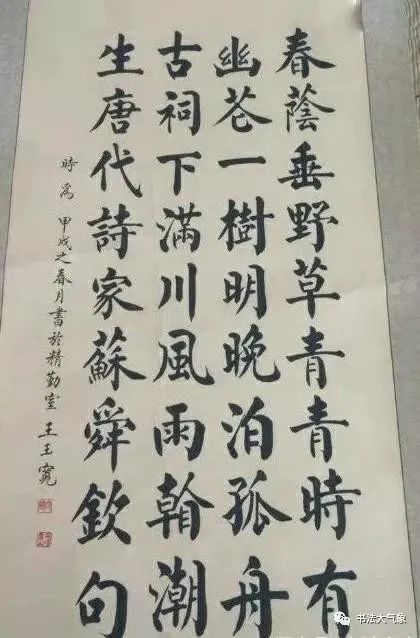 春蔭垂野草青青時有
幽芲一樹明晚泊孤舟
古祠下滿川風雨翰潮
生唐代詩家蘇舜欽句
時為 甲戌之春月書於精勤室 王王寬
书法大气象